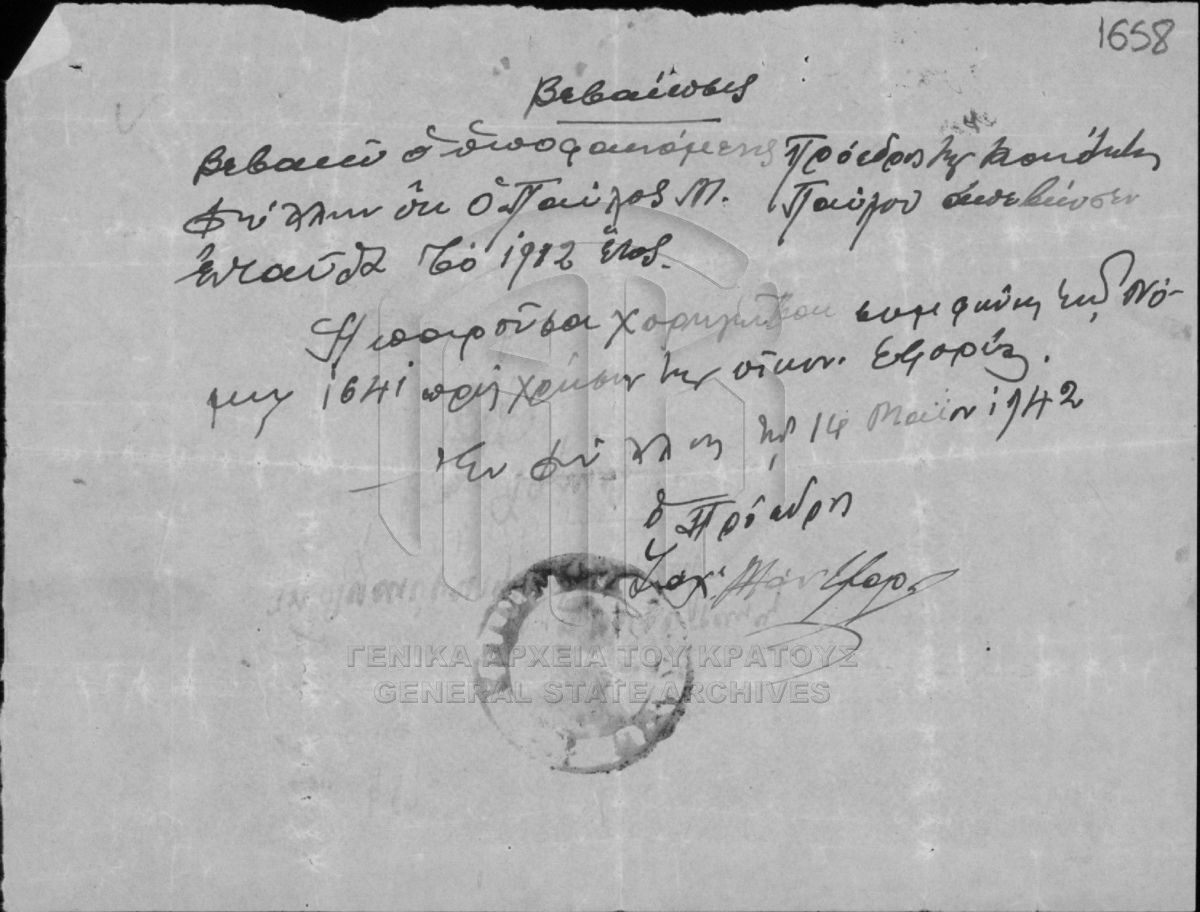 1658
Βεβαίωσις
Βεβαιῶ ὁ ὑποφαινόμενος Πρόεδρος τῆς Κοινότητος
Φύλλων ὅτι ὁ Παῦλος Μ. Παύλου ἀπεβίωσεν
ἐνταῦθα τὸ 1912 ἔτος.
Ἡ παροῦσα χορηγεῖται συμφώνως τῷ Νό-
μῳ 1641 πρὸς χρῆσιν τῆς οἰκον. Ἐφορίας.
Ἐν Φύλλοις τῇ 14 Μαΐου 1942
ὁ Πρόεδρος
ΓΕΝΙΚΑ ΑΡΧΕΙΑ ΤΟΥ ΚΡΑΤΟΥΣ
GENERAL STATE ARCHIVES